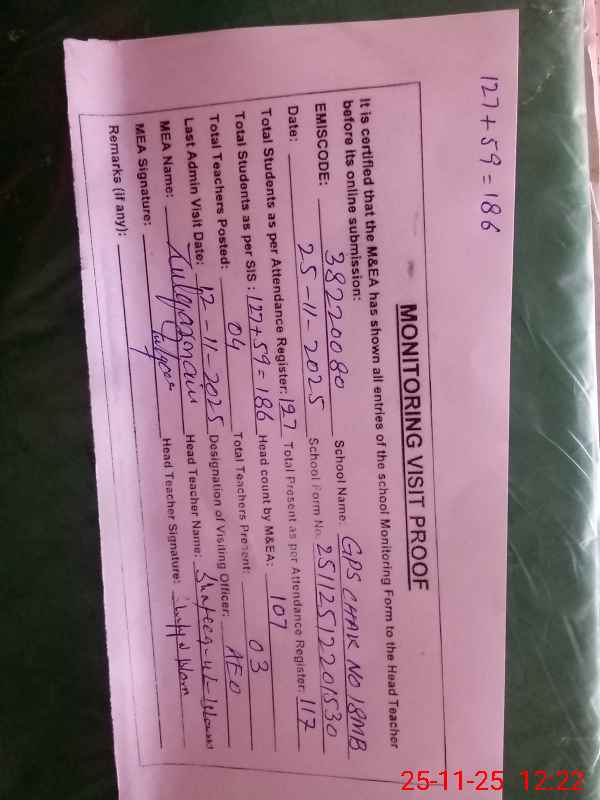 127+59=186
MONITORING VISIT PROOF
It is certified that the M&EA has shown all entries of the school Monitoring Form to the Head Teacher
before its online submission:
EMISCODE: 38220080 School Name: GPS CHAK NO 18MB
Date: 25-11-2025 School Form No. 25112512201530
Total Students as per Attendance Register: 127 Total Present as per Attendance Register: 117
Total Students as per SIS : 127+59=186 Head count by M&EA: 107
Total Teachers Posted: 04 Total Teachers Present: 03
Last Admin Visit Date: 12-11-2025 Designation of Visiting Officer: AEO
MEA Name: Head Teacher Name:
MEA Signature: Head Teacher Signature:
Remarks (if any):
25-11-25 12:22